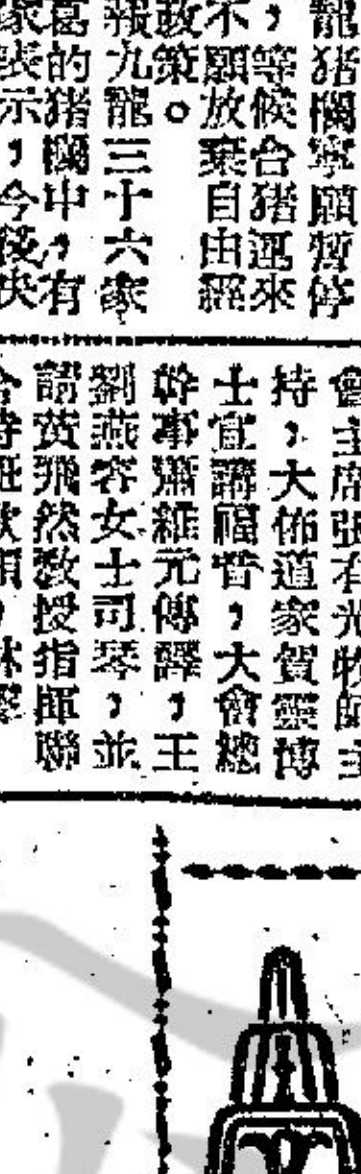 龍猪欄寧願暫停
,等候合猪運來
不願放棄自由經
政策。
報九龍三十六家
葛的猪欄中,有
家表示,今後決
會主席張有光牧師主
持,大佈道家賀靈博
士宣講福音,大會總
幹事蕭維元傳譯,王
劉燕容女士司琴,並
請黃飛然教授指揮聯
合詩班